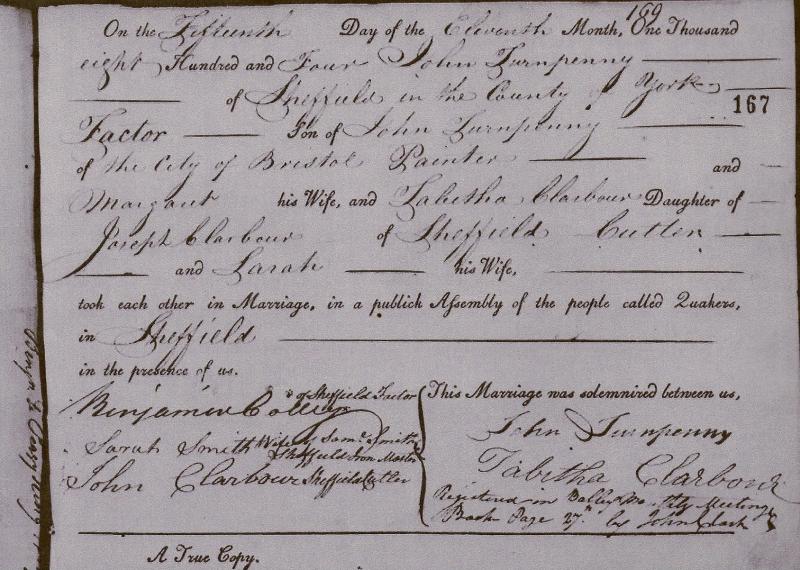 169
On the Fifteenth Day of the Eleventh Month, One Thousand
eight Hundred and Four John Turnpenny
of Sheffield in the County of York
167
Factor Son of John Turnpenny
of the City of Bristol Painter and
Margaret his Wife, and Tabitha Clarbour Daughter of
Joseph Clarbour of Sheffield Cutler
and Sarah his Wife,
took each other in Marriage, in a publick Assembly of the people called Quakers,
in Sheffield
in the presence of us.
Benjamin of Sheffield Factor
Sarah Smith Wife of Saml. Smith
Sheffield Iron Master
John Clarbour Sheffield Cutler
This Marriage was solemnized between us,
John Turnpenny
Tabitha Clarbour
Registered in Balby Mo. Meeting
Book Page 27th. by John
A True Copy.